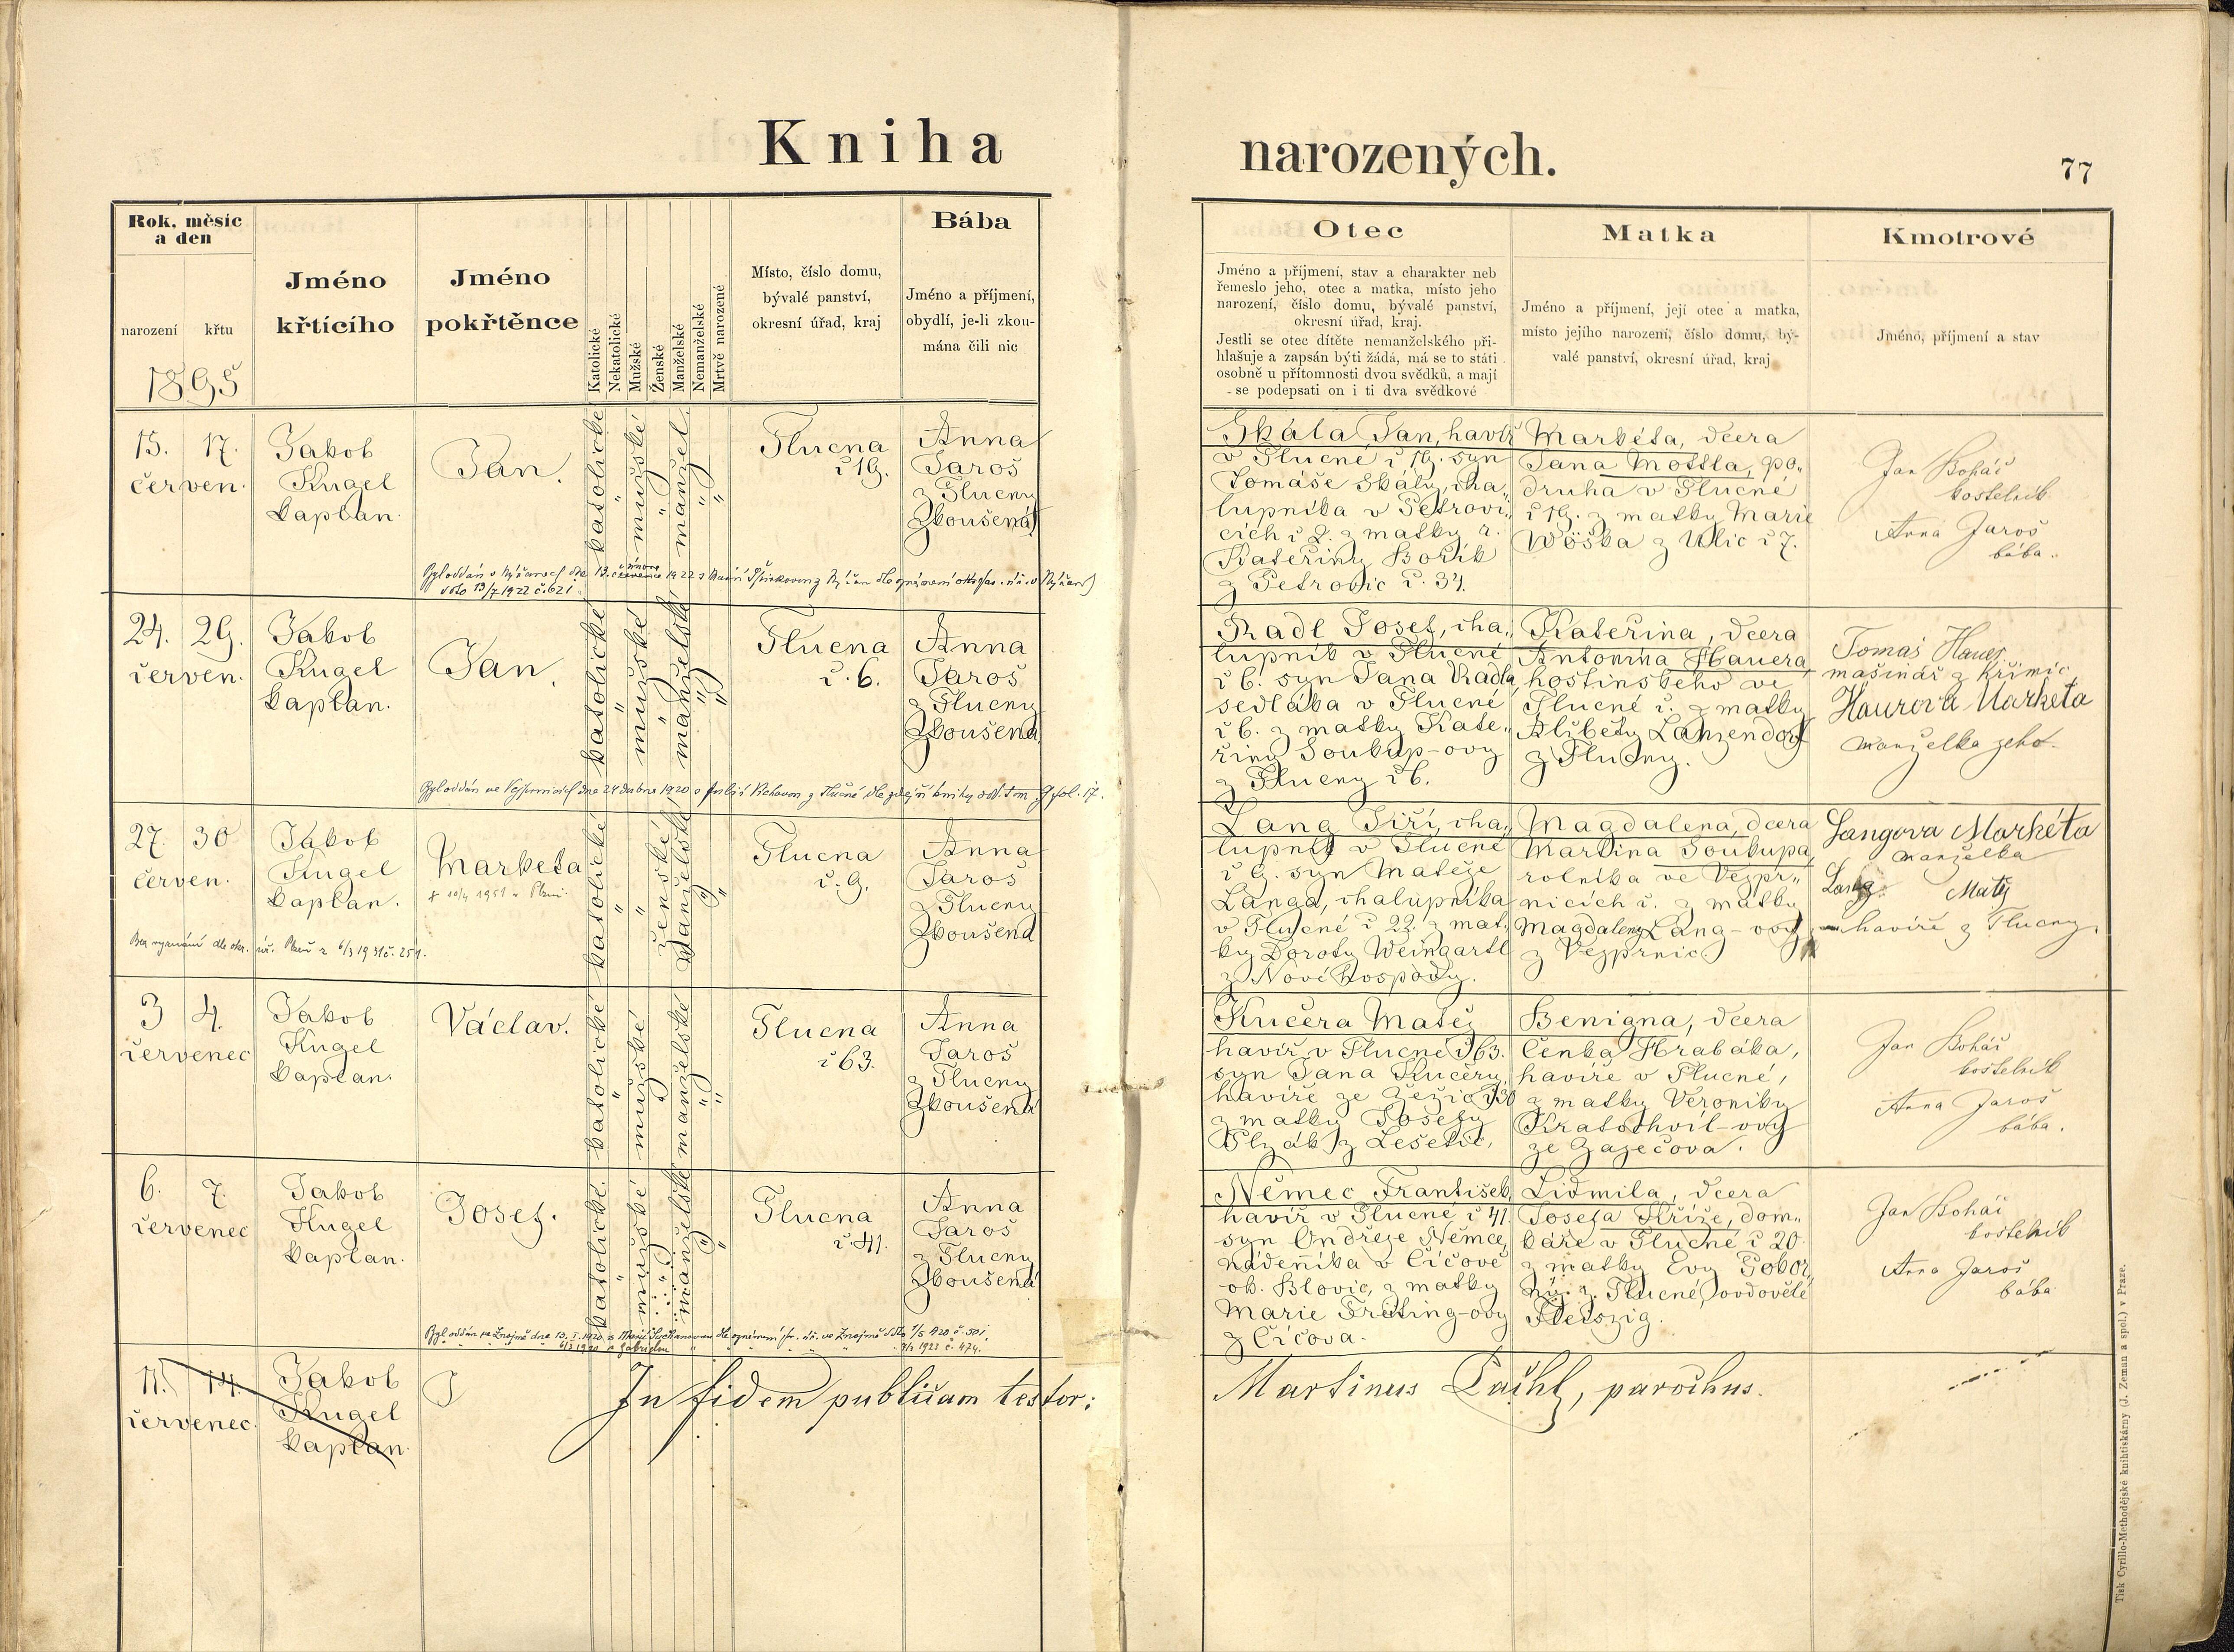 Kniha narozených.
77
Rok, měsíc
a den
narození
křtu
1895
Jméno
křtícího
Jméno
pokřtěnce
Katolické
Nekatolické
Mužské
Ženské
Manželské
Nemanželské
Mrtvě narozené
Místo, číslo domu,
bývalé panství,
okresní úřad, kraj
Bába
Jméno a příjmení,
obydlí, je-li zkou-
mána čili nic
Otec
Jméno a příjmení, stav a charakter neb
řemeslo jeho, otec a matka, místo jeho
narození, číslo domu, bývalé panství,
okresní úřad, kraj.
Jestli se otec dítěte nemanželského při-
hlašuje a zapsán býti žádá, má se to státi
osobně u přítomnosti dvou svědků, a mají
se podepsati on i ti dva svědkové
Matka
Jméno a příjmení, její otec a matka,
místo jejího narození, číslo domu, bý-
valé panství, okresní úřad, kraj
Kmotrové
Jméno, příjmení a stav
15. 17.
červen.
Jakob
Kugel
kaplan.
Jan.
katolické
"
mužské
"
manžel.
"
"
Tlucna
č 19.
Anna
Jaroš
z Tlucny
Zkoušená
Skála Jan, havíř
v Tlucné č 19. syn
Tomáše Skály, cha„
lupníka v Petrovi„
cích č 2. z matky
Kateřiny Bořík
z Petrovic č. 34.
Markéta, dcera
Jana Mottla, po„
druha v Tlucné
č 19. z matky Marie
Wöška z Ulic č 7.
Jan Boháč
kostelník
Anna Jaroš
bába.
Byl oddán v Nýřanech dne 13. února 1922 s
dto 13/7 1922 č. 621
24. 29.
červen.
Jakob
Kugel
kaplan.
Jan.
katolické
"
mužské
"
manželské
"
"
Tlucna
č. 6.
Anna
Jaroš
z Tlucny
Zkoušená
Radl Josef, cha„
lupník v Tlucné
č 6. syn Jana Radla,
sedláka v Tlucné
č 6. z matky Kate„
řiny Soukup-ovy
z Tlucny č 6.
Kateřina, dcera
Antonína Hauera,
hostinského ve
Tlucné č. z matky
Alžběty Lanzendorf
z Tlucny.
Tomáš Hauer
mašinář z Křimic
Haurová Markéta
manželka jeho.
Byl oddán ve Vejprnicích dne 24 dubna 1920 s z Tlučné dle zdejší knihy odd. tom 9 fol. 17.
27. 30
červen.
Jakob
Kugel
kaplan.
Markéta
katolické
"
"
ženské
manželské
"
"
Tlucna
č. 9.
Anna
Jaroš
z Tlucny
Zkoušená
Lang Jiří, cha„
lupník v Tlucné
č 9. syn Matěje
Langa, chalupníka
v Tlucné č 22. z mat„
ky Doroty Weingartl
z Nové hospody.
Magdalena, dcera
Martina Soukupa,
rolníka ve Vejpr„
nicích č. z matky
Magdaleny Lang-ovy
z Vejprnic.
Langova Markéta
manželka
Lang Matěj
havíře z Tlucny
Bez vyznání dle okr. úř. Plzeň z 6/3 1931 č. 251.
3 4.
červenec
Jakob
Kugel
kaplan.
Václav.
katolické
"
mužské
"
manželské
"
"
Tlucna
č 63.
Anna
Jaroš
z Tlucny
Zkoušená
Kučera Matěj
havíř v Tlucné č 63.
syn Jana Kučery,
havíře ze Žežic č 30
z matky Josefy
Plzák z Lešetic.
Benigna, dcera
Čenka Hrabáka,
havíře v Tlucné,
z matky Veroniky
Kratochvíl-ovy
ze Zaječova.
Jan Boháč
kostelník
Anna Jaroš
bába.
6. 7.
červenec
Jakob
Kugel
kaplan.
Josef.
katolické
"
mužské
"
manželské
"
"
Tlucna
č. 41.
Anna
Jaroš
z Tlucny
Zkoušená
Němec František,
havíř v Tlucné č 41
syn Ondřeje Němce,
nádeníka v Čičově
ok. Blovic, z matky
Marie Freiling-ovy
z Čičova.
Lidmila, dcera
Josefa Kříže, dom„
káře v Tlucné č 20
z matky Evy
z Tlucné, ovdovělé
Jan Boháč
kostelník
Anna Jaroš
bába.
Byl oddán ve Znojmě dne 13. I. 1920 s Marií
11. 14.
červenec.
Jakob
Kugel
kaplan.
J
In fidem publicam testor:
Martinus parochus.
Tisk Cyrillo-Methodějské knihtiskárny (J. Zeman a spol.) v Praze.